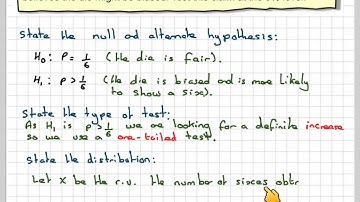 State the null and alternate hypothesis:
H₀: P = 1/6 (the die is fair).
H₁: P > 1/6 (the die is biased and is more likely
to show a six).
State the type of test:
As H₁ is p > 1/6 we are looking for a definite increase
so we use a one-tailed test.
State the distribution:
Let X be the r.v. the number of sixes obtr